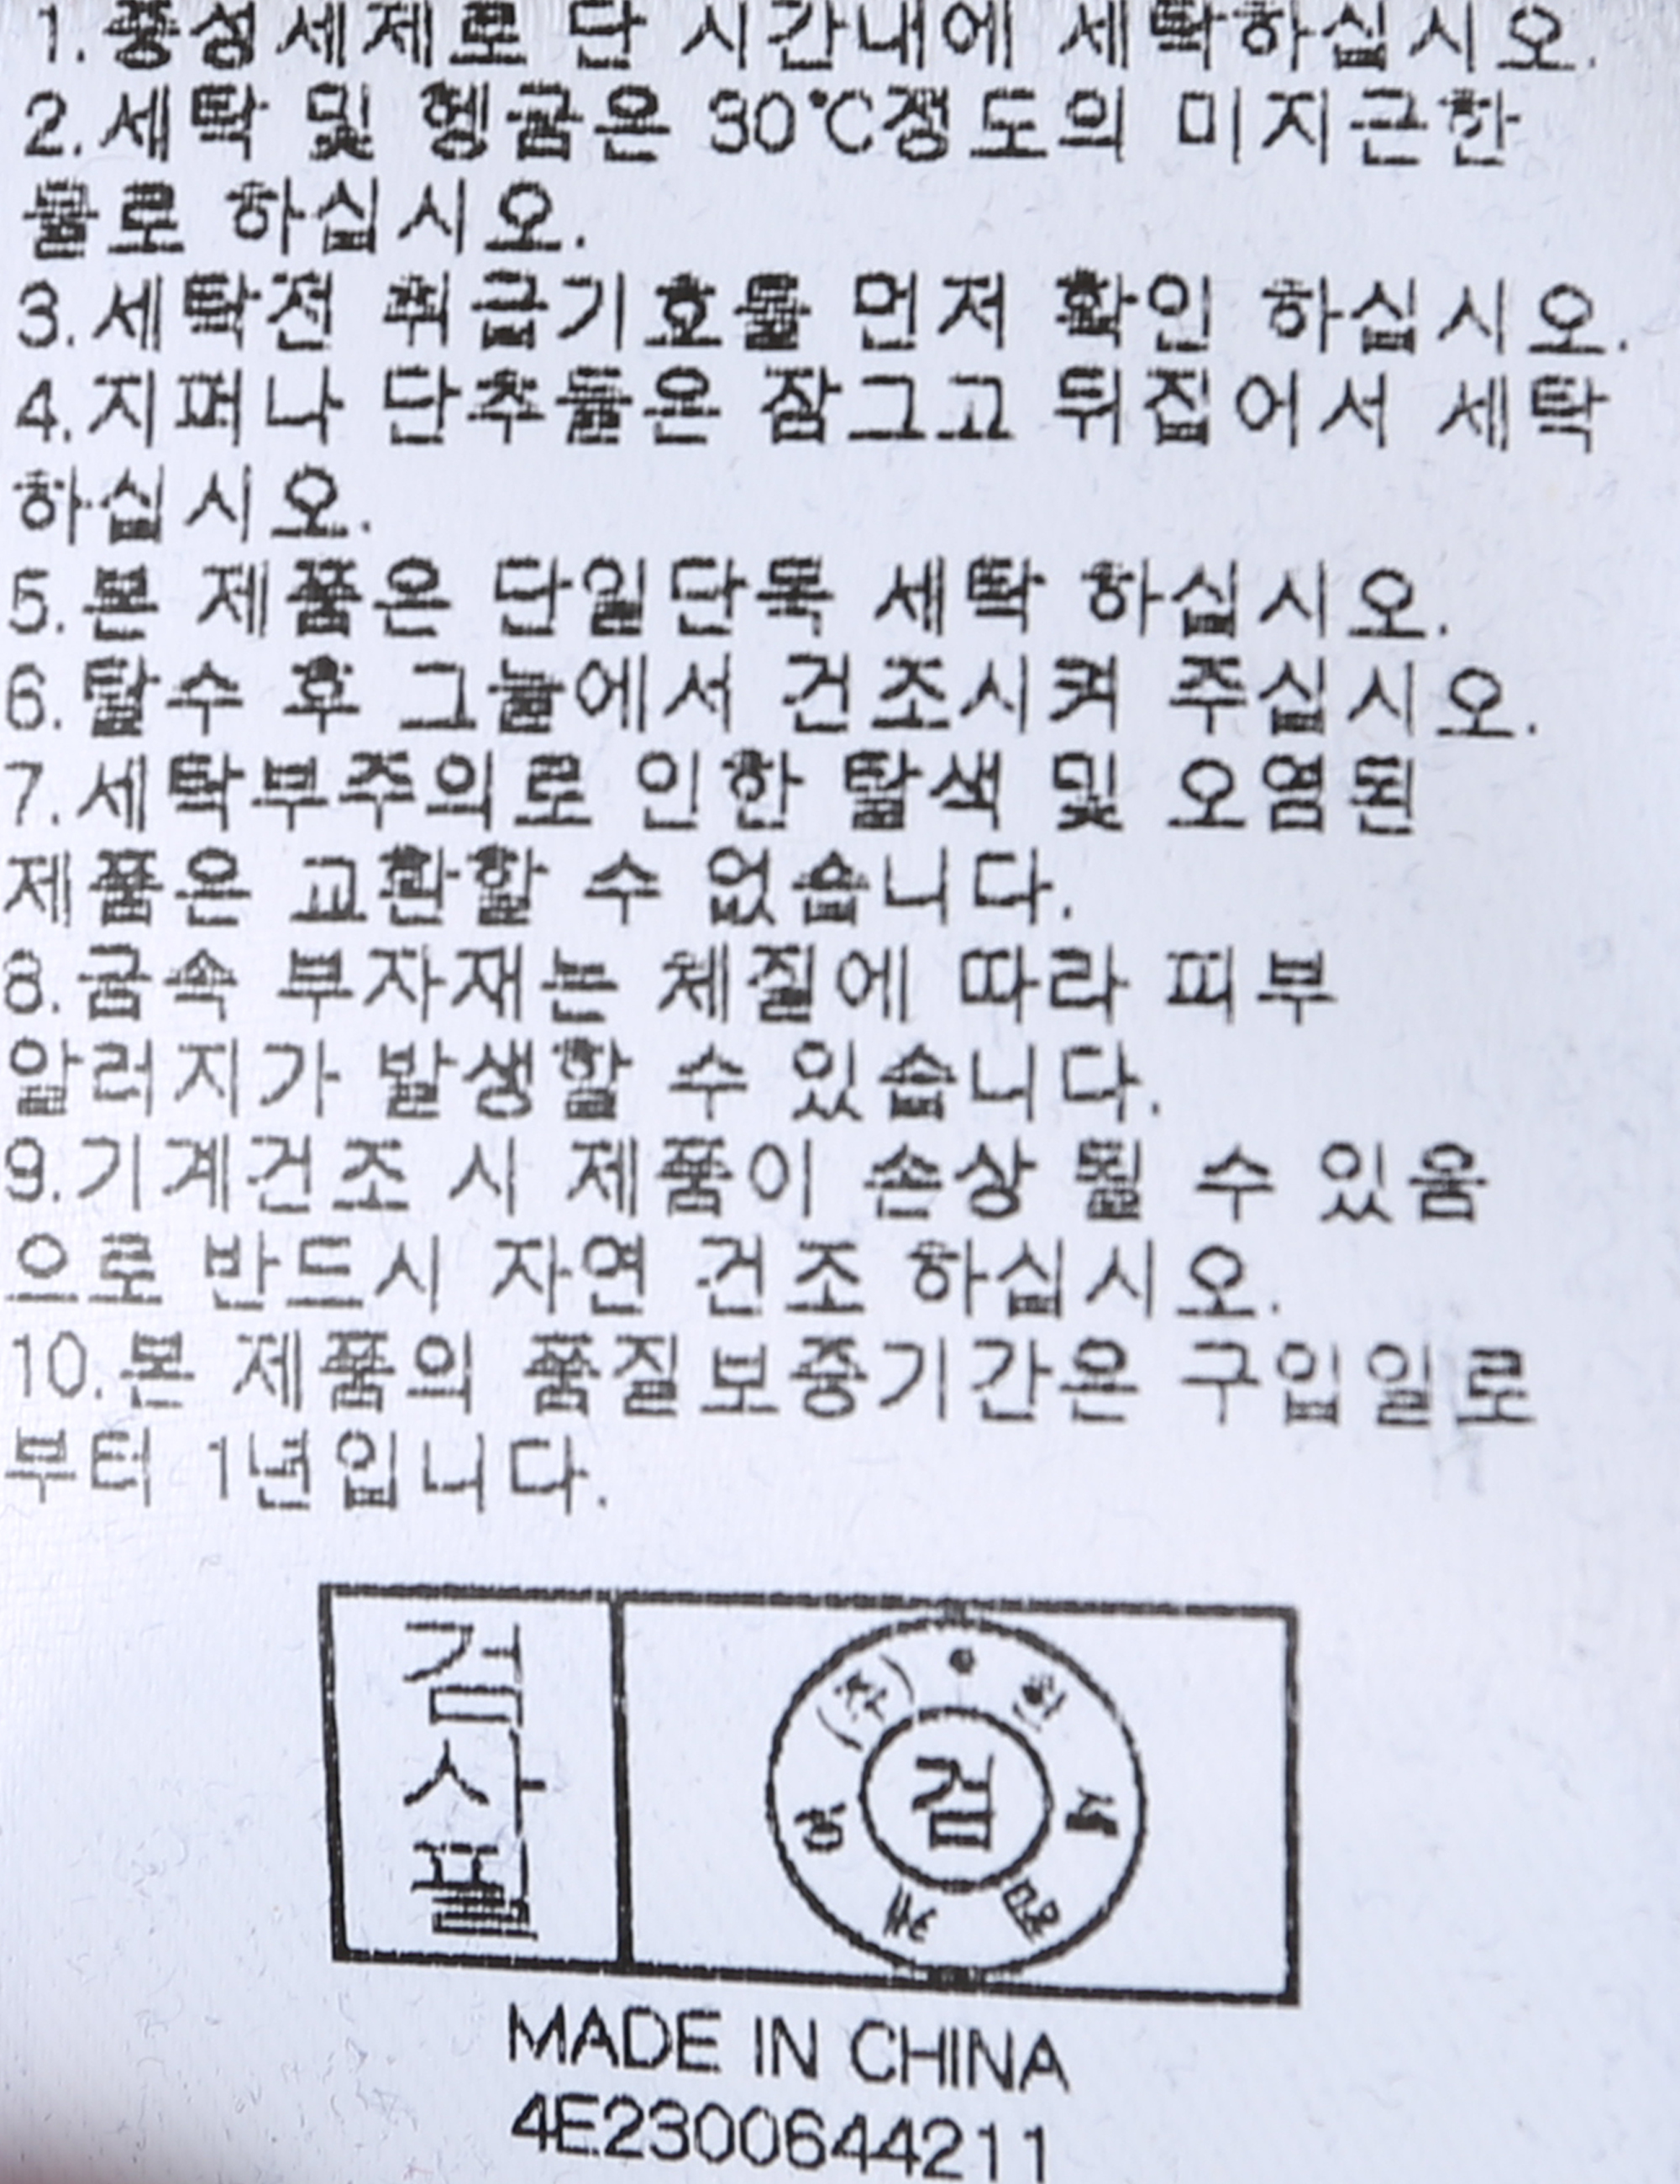 1.풍성세제로 단 시간내에 세탁하십시오.
2.세탁 및 헹굼은 30℃정도의 미지근한
물로 하십시오.
3.세탁전 취급기호를 먼저 확인 하십시오.
4.지퍼나 단추들은 잠그고 뒤집어서 세탁
하십시오.
5.본 제품은 단일단독 세탁 하십시오.
6.탈수 후 그늘에서 건조시켜 주십시오.
7.세탁부주의로 인한 탈색 및 오염된
제품은 교환할 수 없습니다.
8.금속 부자재는 체질에 따라 피부
알러지가 발생할 수 있습니다.
9.기계건조 시 제품이 손상 될 수 있음
으로 반드시 자연 건조 하십시오.
10.본 제품의 품질보증기간은 구입일로
부터 1년입니다.
검사필
(주)
검
MADE IN CHINA
4E2300644211